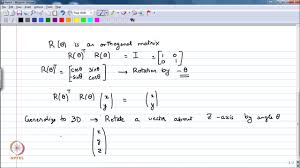 R(θ) is an orthogonal matrix
R(θ)ᵀ R(θ) = I = [1 0
0 1]
R(θ)ᵀ = [cosθ sinθ
-sinθ cosθ] → Rotation by -θ
R(θ)ᵀ R(θ) (x
y) = (x
y)
Generalize to 3D → Rotate a vector about Z-axis by angle θ
(x
y
z)
NPTEL